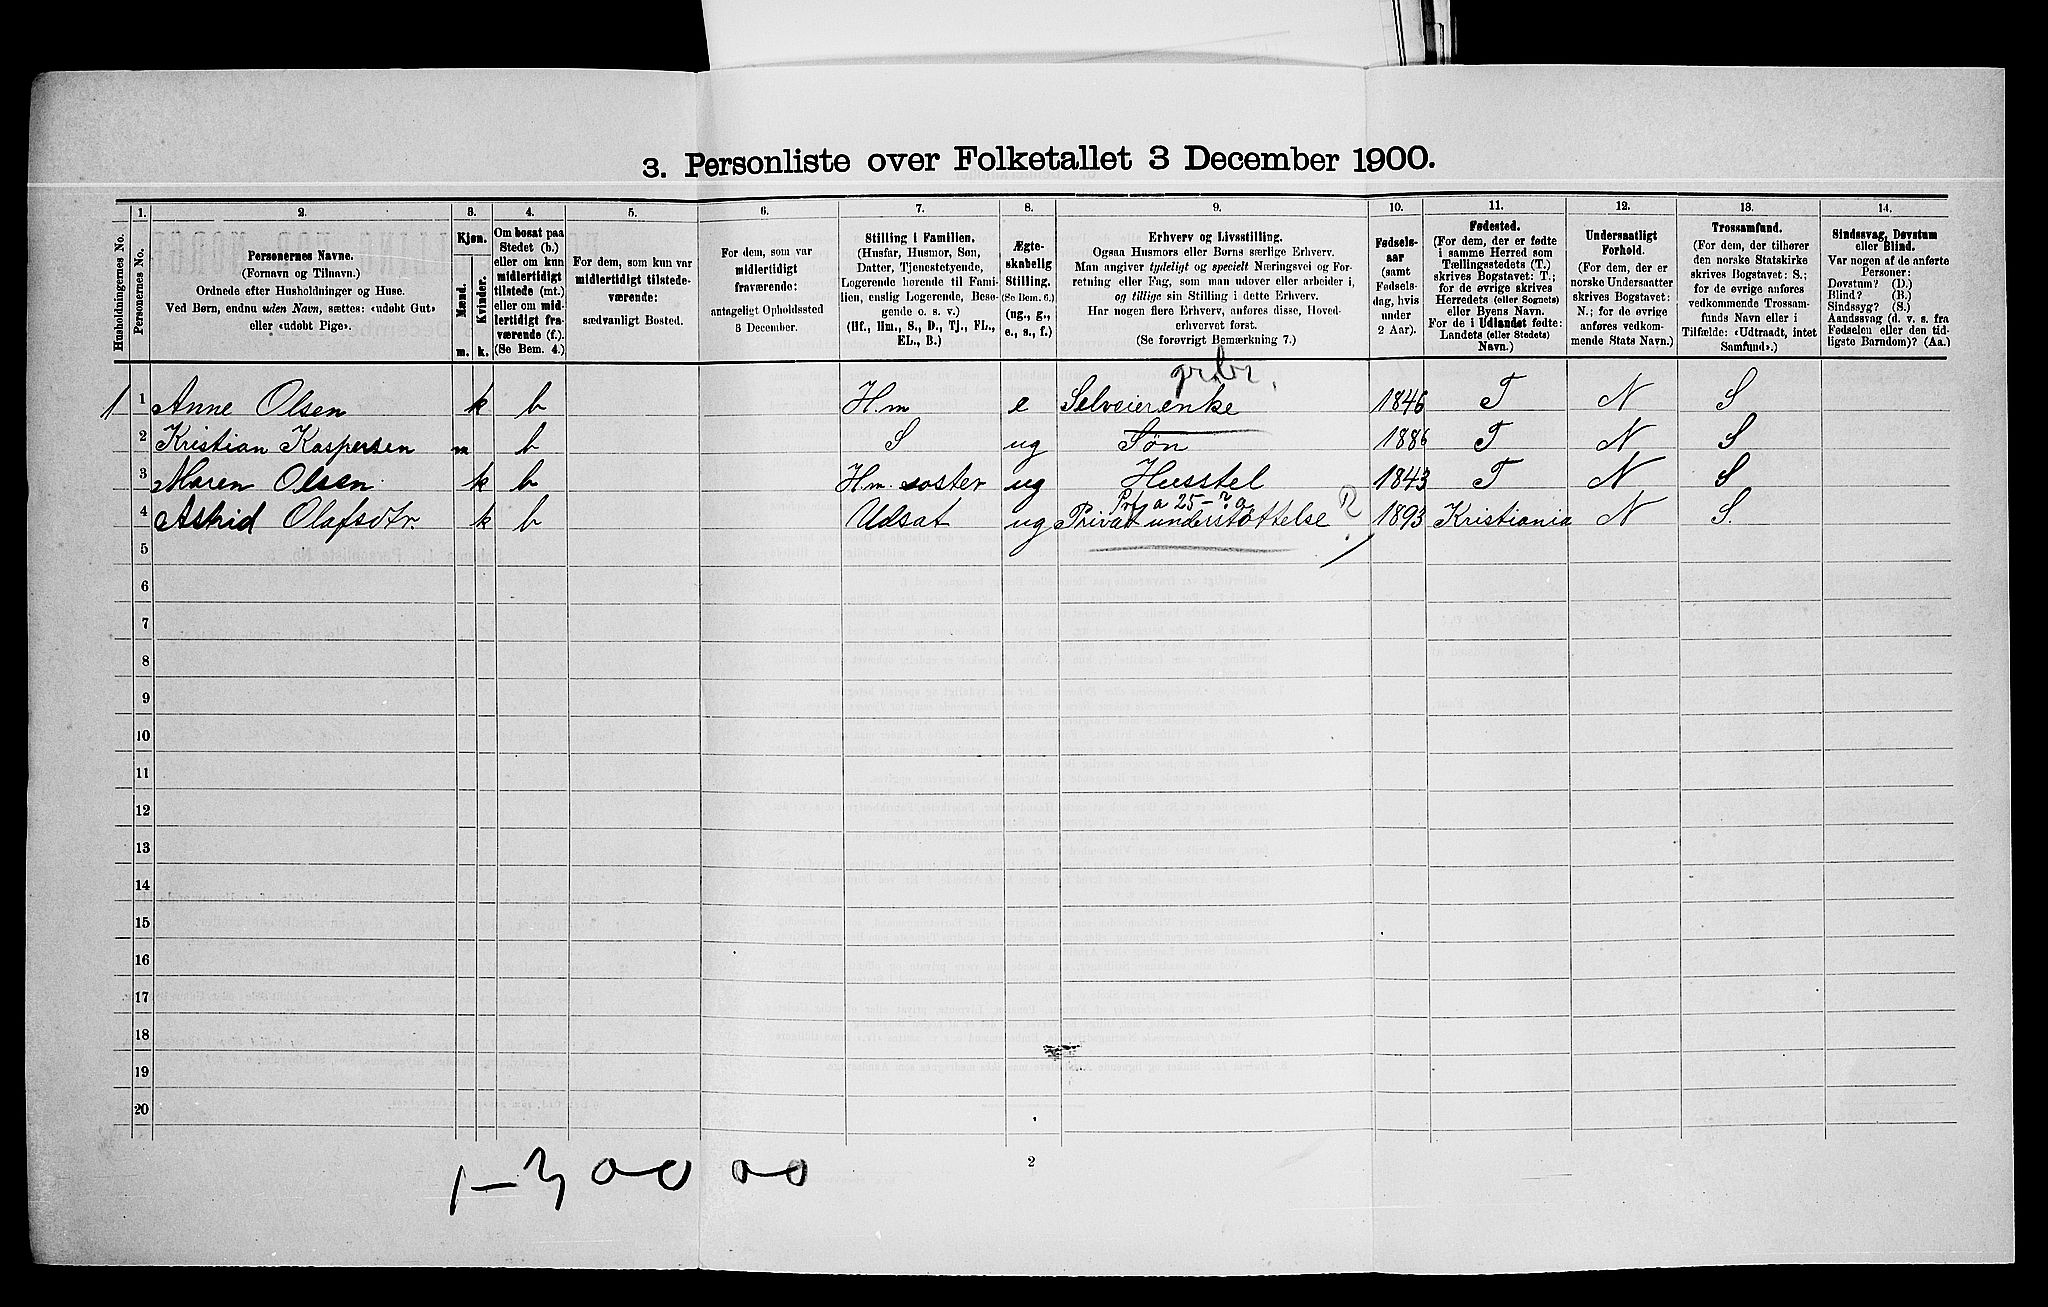 3. Personliste over Folketallet 3 December 1900.
Husholdningernes No.
1.
Personernes No.
2.
Personernes Navne.
(Fornavn og Tilnavn.)
Ordnede efter Husholdninger og Huse.
Ved Børn, endnu uden Navn, sættes: «udøbt Gut»
eller «udøbt Pige».
3.
Kjøn.
Mænd.
Kvinder.
m. k.
4.
Om bosat paa
Stedet (b.)
eller om kun
midlertidigt
tilstede (mt.)
eller om mid-
lertidigt fra-
værende (f.).
(Se Bem. 4.)
5.
For dem, som kun var
midlertidigt tilstede-
værende:
sædvanligt Bosted.
6.
For dem, som var
midlertidigt
fraværende:
antageligt Opholdssted
3 December.
7.
Stilling i Familien.
(Husfar, Husmor, Søn,
Datter, Tjenestetyende,
Logerende hørende til Fami-
lien, enslig Logerende, Besø-
gende o. s. v.)
(Hf., Hm., S., D., Tj., FL.,
EL., B.)
8.
Ægte-
skabelig
Stilling.
(Se Bem. 6.)
(ug., g.,
e., s., f.)
9.
Erhverv og Livsstilling.
Ogsaa Husmors eller Børns særlige Erhverv.
Man angiver tydeligt og specielt Næringsvei og For-
retning eller Fag, som man udøver eller arbeider i,
og tillige sin Stilling i dette Erhverv.
Har nogen flere Erhverv, anføres disse, Hoved-
erhvervet først.
(Se forøvrigt Bemærkning 7.)
10.
Fødsels-
aar
(samt
Fødsels-
dag, hvis
under
2 Aar).
11.
Fødested.
(For dem, der er fødte
i samme Herred som
Tællingsstedets (T.)
skrives Bogstavet: T.;
for de øvrige skrives
Herredets (eller Sognets)
eller Byens Navn.
For de i Udlandet fødte:
Landets (eller Stedets)
Navn.)
12.
Undersaatligt
Forhold.
(For dem, der er
norske Undersaatter
skrives Bogstavet:
N.; for de øvrige
anføres vedkom-
mende Stats Navn.)
13.
Trossamfund.
(For dem, der tilhører
den norske Statskirke
skrives Bogstavet: S.;
for de øvrige anføres
vedkommende Trossam-
funds Navn eller i
Tilfælde: «Udtraadt, intet
Samfund».)
14.
Sindssvag, Døvstum
eller Blind.
Var nogen af de anførte
Personer:
Døvstum? (D.)
Blind? (B.)
Sindssyg? (S.)
Aandssvag (d. v. s. fra
Fødselen eller den tid-
ligste Barndom)? (Aa.)
1 1 Anne Olsen k b Hm e Selveierenke 1846 T N S
2 Kristian Kaspersen m b S ug Søn 1886 T N S
3 Maren Olsen k b Hm. søster ug Husstel 1843 T N S
4 Astrid Olafsdtr k b Udsat ug Privat understøttelse 1893 Kristiania N S.
5
6
7
8
9
10
11
12
13
14
15
16
17
18
19
20
2